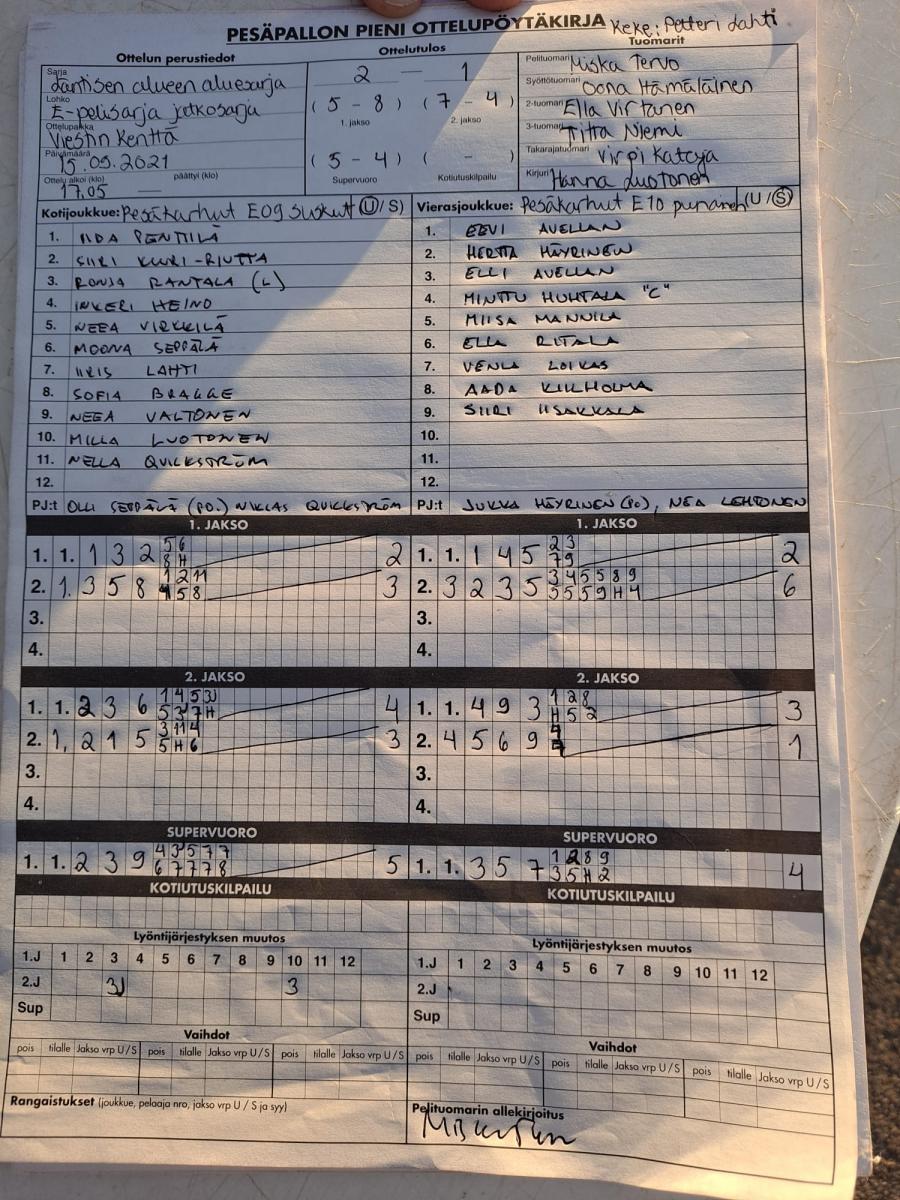 PESÄPALLON PIENI OTTELUPÖYTÄKIRJA Keke: Petteri Lahti
Ottelun perustiedot Ottelutulos Tuomarit
Sarja Läntisen alueen aluesarja
Lohko E-pelisarja jatkosarja
Ottelupaikka Viestin Kenttä
Päivämäärä 15.09.2021
Ottelu alkoi (klo) 17.05 päättyi (klo) —
2 — 1
(5 - 8) (7 - 4)
1. jakso 2. jakso
(5 - 4) ( - )
Supervuoro Kotiutuskilpailu
Pelituomari Miska Tervo
Syöttötuomari Oona Hämäläinen
2-tuomari Ella Virtanen
3-tuomari Titta Niemi
Takarajatuomari Virpi Katoja
Kirjuri Hanna Luotonen
Kotijoukkue: Pesäkarhut E09 suskutt (U/S)
1. IIDA PENTTILÄ
2. SIIRI KUURI-RIUTTA
3. RONJA RANTALA (L)
4. INKERI HEINO
5. NEEA VIRKKILÄ
6. MOONA SEPPÄLÄ
7. IIRIS LAHTI
8. SOFIA BRAGGE
9. NEEA VALTONEN
10. MILLA LUOTONEN
11. NELLA QUICKSTRÖM
12.
PJ:t OLLI SEPPÄLÄ (PO.) NIKLAS QUICKSTRÖM
Vierasjoukkue: Pesäkarhut E10 (U/S)
1. EEVI AVELLAN
2. HERTTA HÄYRINEN
3. ELLI AVELLAN
4. MINTTU HUHTALA "C"
5. MIISA MANNILA
6. ELLA RITALA
7. VENLA LOIKAS
8. AADA KIILHOLMA
9. SIIRI IISAKKALA
10.
11.
12.
PJ:t JUKKA HÄYRINEN (PO), NEA LEHTONEN
1. JAKSO
1. 1. 1 3 2 5 6 8 H 2
2. 1. 3 5 8 1 2 11 4 5 8 3
3.
4.
1. JAKSO
1. 1. 1 4 5 2 3 7 9 2
2. 3 2 3 5 3 4 5 5 8 9 5 5 5 9 H 4 6
3.
4.
2. JAKSO
1. 1. 2 3 6 1 4 5 3J 5 3 7 H 4
2. 1, 2 1 5 3 11 4 5 H 6 3
3.
4.
2. JAKSO
1. 1. 4 9 3 1 2 8 H 5 2 3
2. 4 5 6 9 1
3.
4.
SUPERVUORO
1. 1. 2 3 9 4 3 5 7 7 6 7 7 7 8 5
SUPERVUORO
1. 1. 3 5 7 1 2 8 9 3 5 H 2 4
KOTIUTUSKILPAILU
KOTIUTUSKILPAILU
Lyöntijärjestyksen muutos
1.J 1 2 3 4 5 6 7 8 9 10 11 12
2.J 3J 3
Sup
Lyöntijärjestyksen muutos
1.J 1 2 3 4 5 6 7 8 9 10 11 12
2.J
Sup
Vaihdot
pois tilalle Jakso vrp U/S pois tilalle Jakso vrp U/S pois tilalle Jakso vrp U/S
Vaihdot
pois tilalle Jakso vrp U/S pois tilalle Jakso vrp U/S pois tilalle Jakso vrp U/S
Rangaistukset (joukkue, pelaaja nro, jakso vrp U / S ja syy)
Pelituomarin allekirjoitus